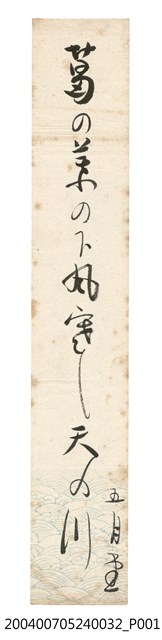 葛の葉の下風寒し天の川
五月堂
200400705240032_P001